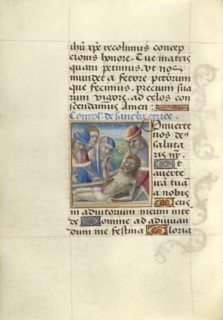 ihũ xp̃e recolimus concep
cionis honore. Tue matris
quam petimus. Vt nos
mundet a fetore pctorum
que fecimus. precium sua
rum vigore. ad celos con
scendamus Amen:
Compl' de sancta cruce.
Onuerte
nos de
saluta
ris nr̃.
Et
auerte
irã tuã
a nobis
Deus
in adiutorium meum inte
de Domine ad adiuuan
dum me festina Gloria